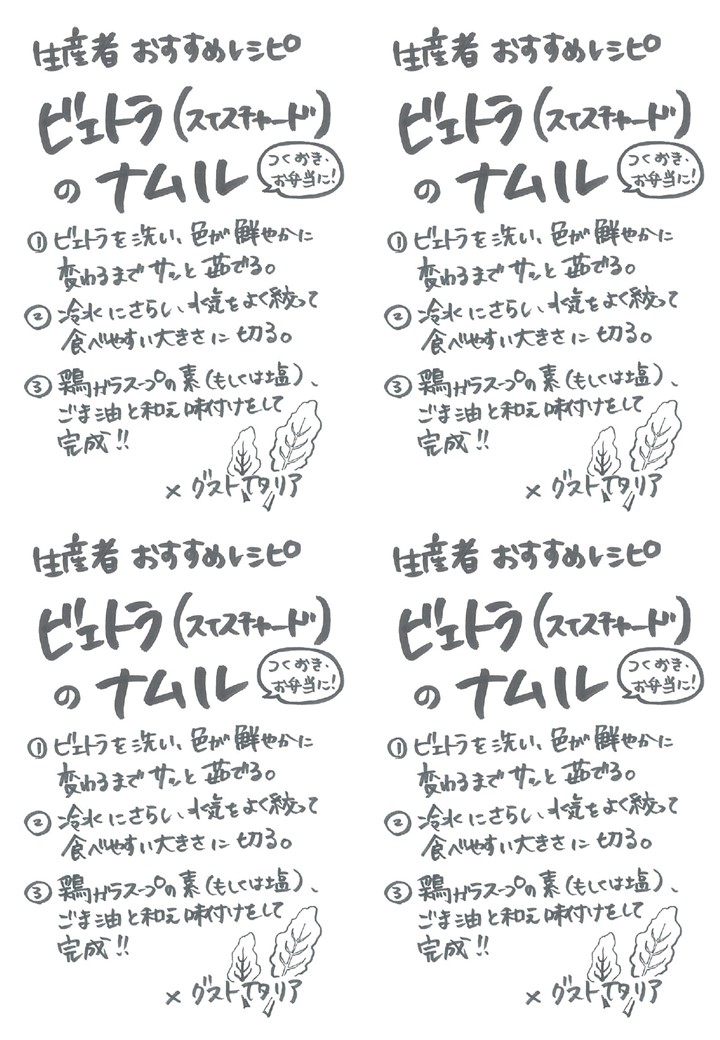 生産者 おすすめレシピ
ビエトラ(スイスチャード)
のナムル
つくおき、
お弁当に!
① ビエトラを洗い、色が鮮やかに
変わるまでサッと茹でる。
② 冷水にさらし、水気をよく絞って
食べやすい大きさに切る。
③ 鶏ガラスープの素(もしくは塩)、
ごま油と和え味付けをして
完成!!
× グストイタリア
生産者 おすすめレシピ
ビエトラ(スイスチャード)
のナムル
つくおき、
お弁当に!
① ビエトラを洗い、色が鮮やかに
変わるまでサッと茹でる。
② 冷水にさらし、水気をよく絞って
食べやすい大きさに切る。
③ 鶏ガラスープの素(もしくは塩)、
ごま油と和え味付けをして
完成!!
× グストイタリア
生産者 おすすめレシピ
ビエトラ(スイスチャード)
のナムル
つくおき、
お弁当に!
① ビエトラを洗い、色が鮮やかに
変わるまでサッと茹でる。
② 冷水にさらし、水気をよく絞って
食べやすい大きさに切る。
③ 鶏ガラスープの素(もしくは塩)、
ごま油と和え味付けをして
完成!!
× グストイタリア
生産者 おすすめレシピ
ビエトラ(スイスチャード)
のナムル
つくおき、
お弁当に!
① ビエトラを洗い、色が鮮やかに
変わるまでサッと茹でる。
② 冷水にさらし、水気をよく絞って
食べやすい大きさに切る。
③ 鶏ガラスープの素(もしくは塩)、
ごま油と和え味付けをして
完成!!
× グストイタリア